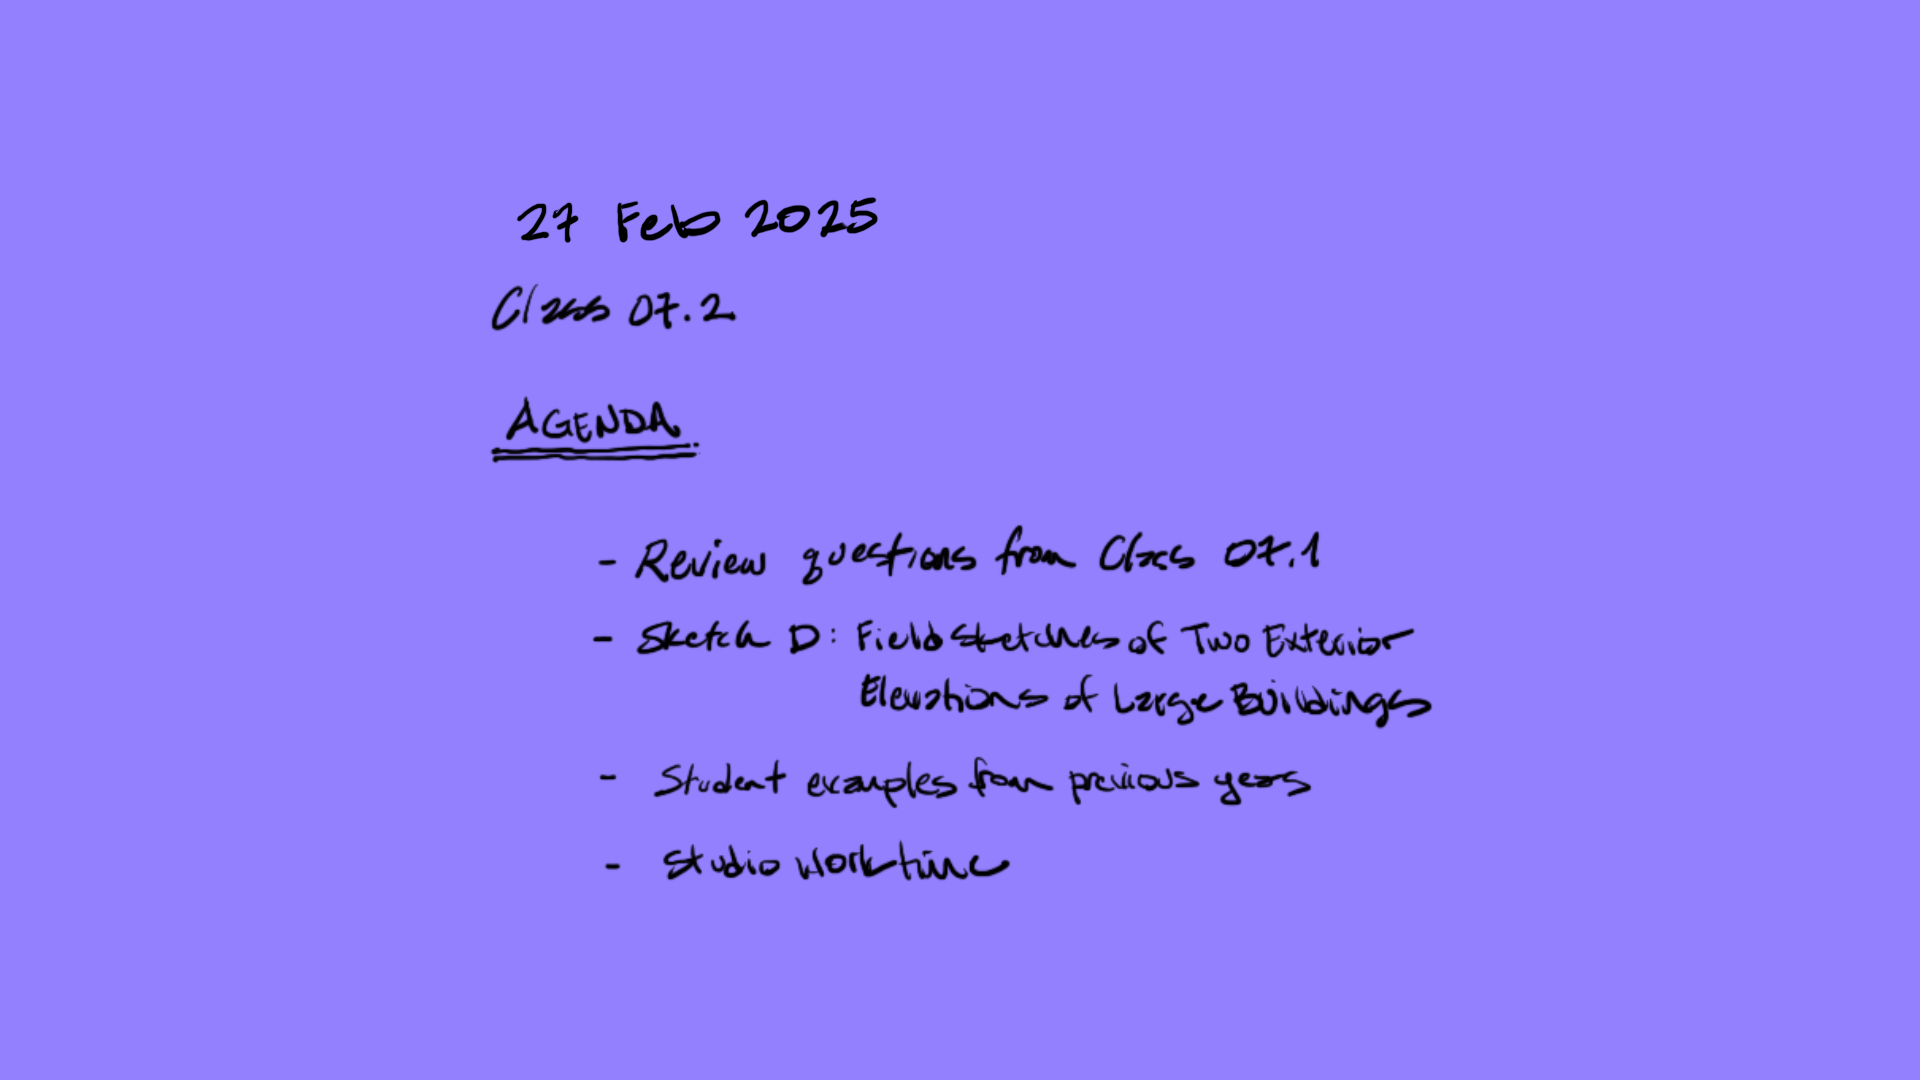 27 Feb 2025
Class 07.2
AGENDA
- Review questions from Class 07.1
- Sketch D: Field Sketches of Two Exterior
Elevations of Large Buildings
- Student examples from previous years
- Studio Worktime